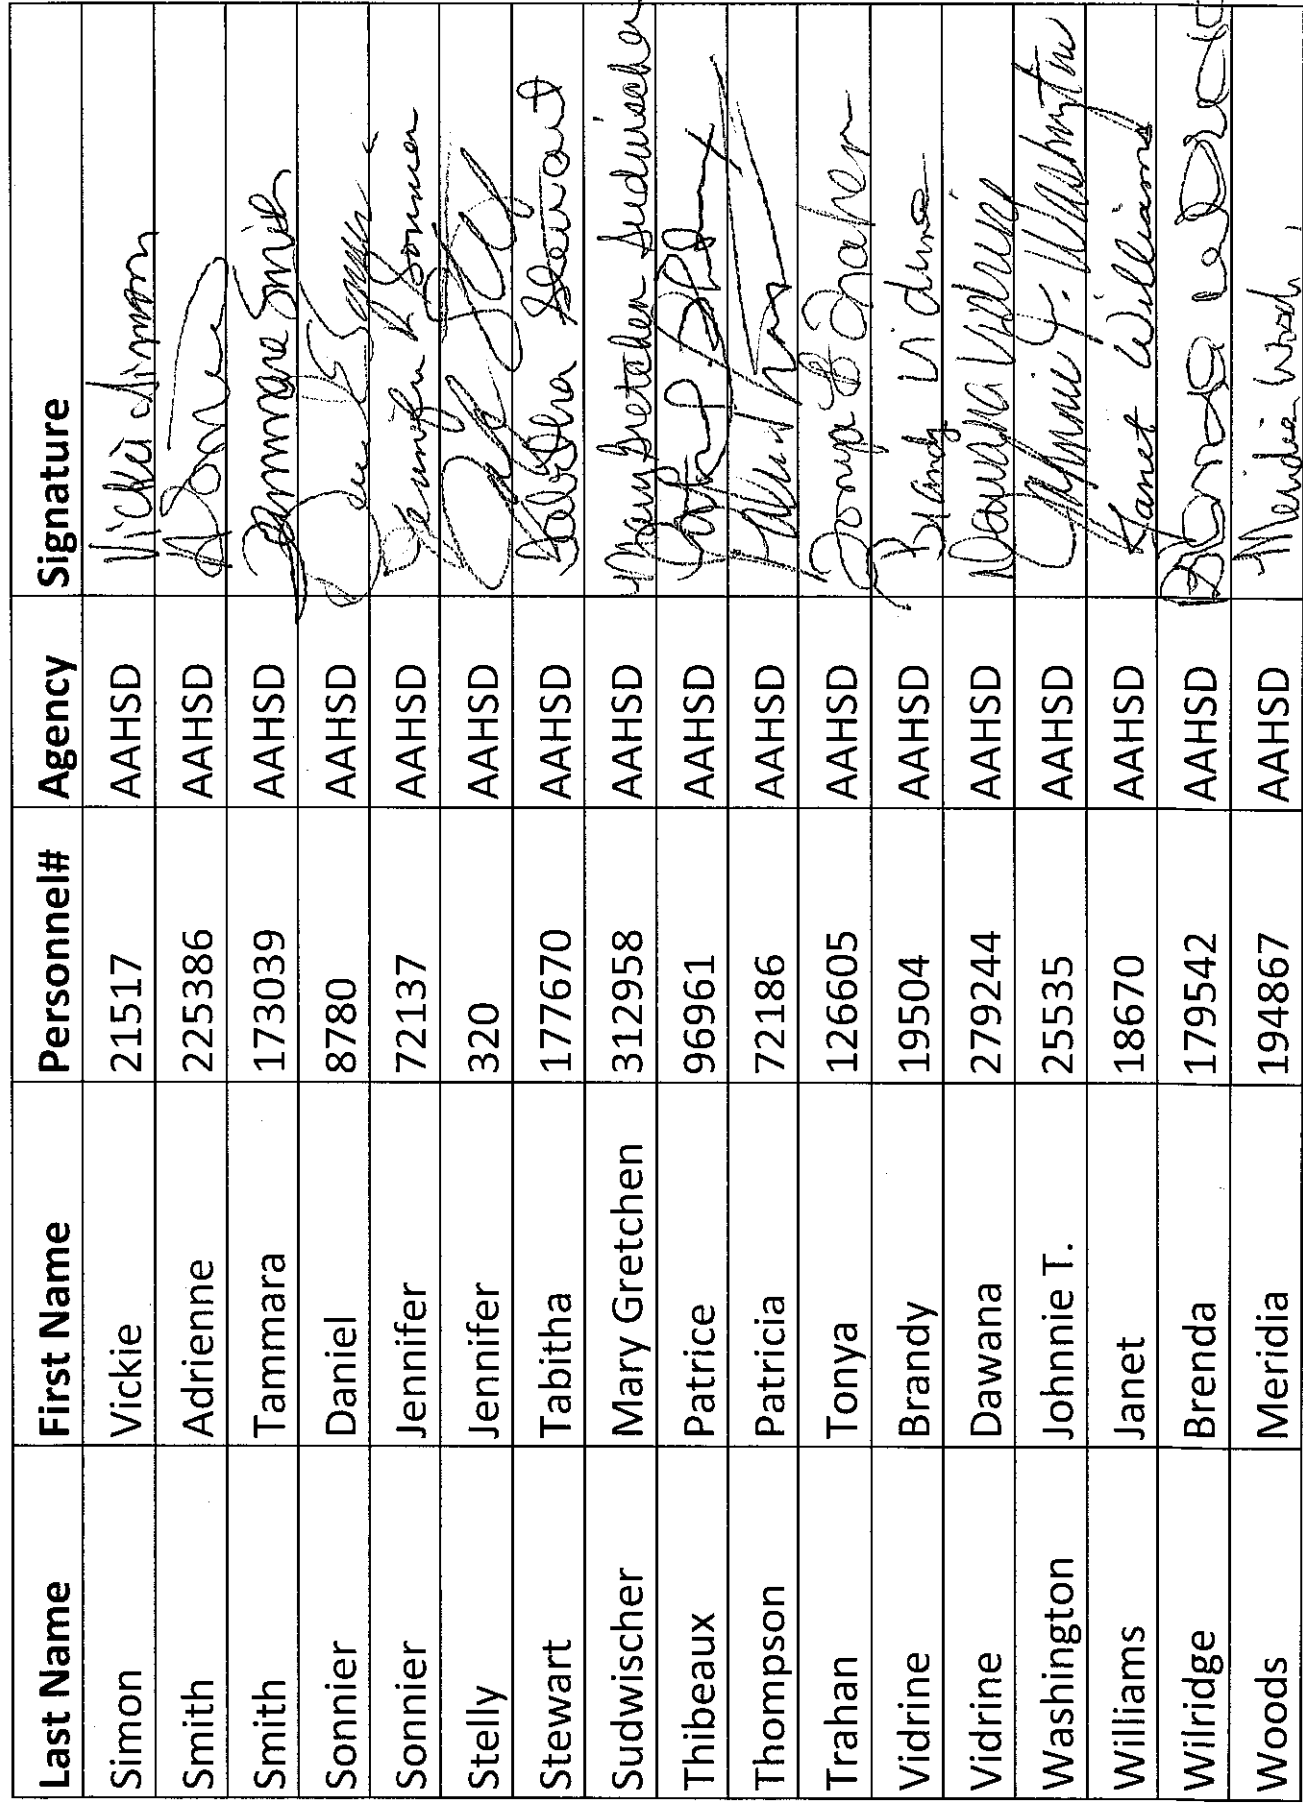 Last Name First Name Personnel# Agency Signature
Simon Vickie 21517 AAHSD Vickie Simon
Smith Adrienne 225386 AAHSD
Smith Tammara 173039 AAHSD Smith
Sonnier Daniel 8780 AAHSD
Sonnier Jennifer 72137 AAHSD Jennifer Sonnier
Stelly Jennifer 320 AAHSD
Stewart Tabitha 177670 AAHSD Tabitha Stewart
Sudwischer Mary Gretchen 312958 AAHSD Mary Gretchen Sudwischer
Thibeaux Patrice 96961 AAHSD
Thompson Patricia 72186 AAHSD
Trahan Tonya 126605 AAHSD Tonya Trahan
Vidrine Brandy 19504 AAHSD Brandy Vidrine
Vidrine Dawana 279244 AAHSD Dawana Vidrine
Washington Johnnie T. 25535 AAHSD Johnnie T. Washington
Williams Janet 18670 AAHSD Janet Williams
Wilridge Brenda 179542 AAHSD Brenda
Woods Meridia 194867 AAHSD Meridia Woods